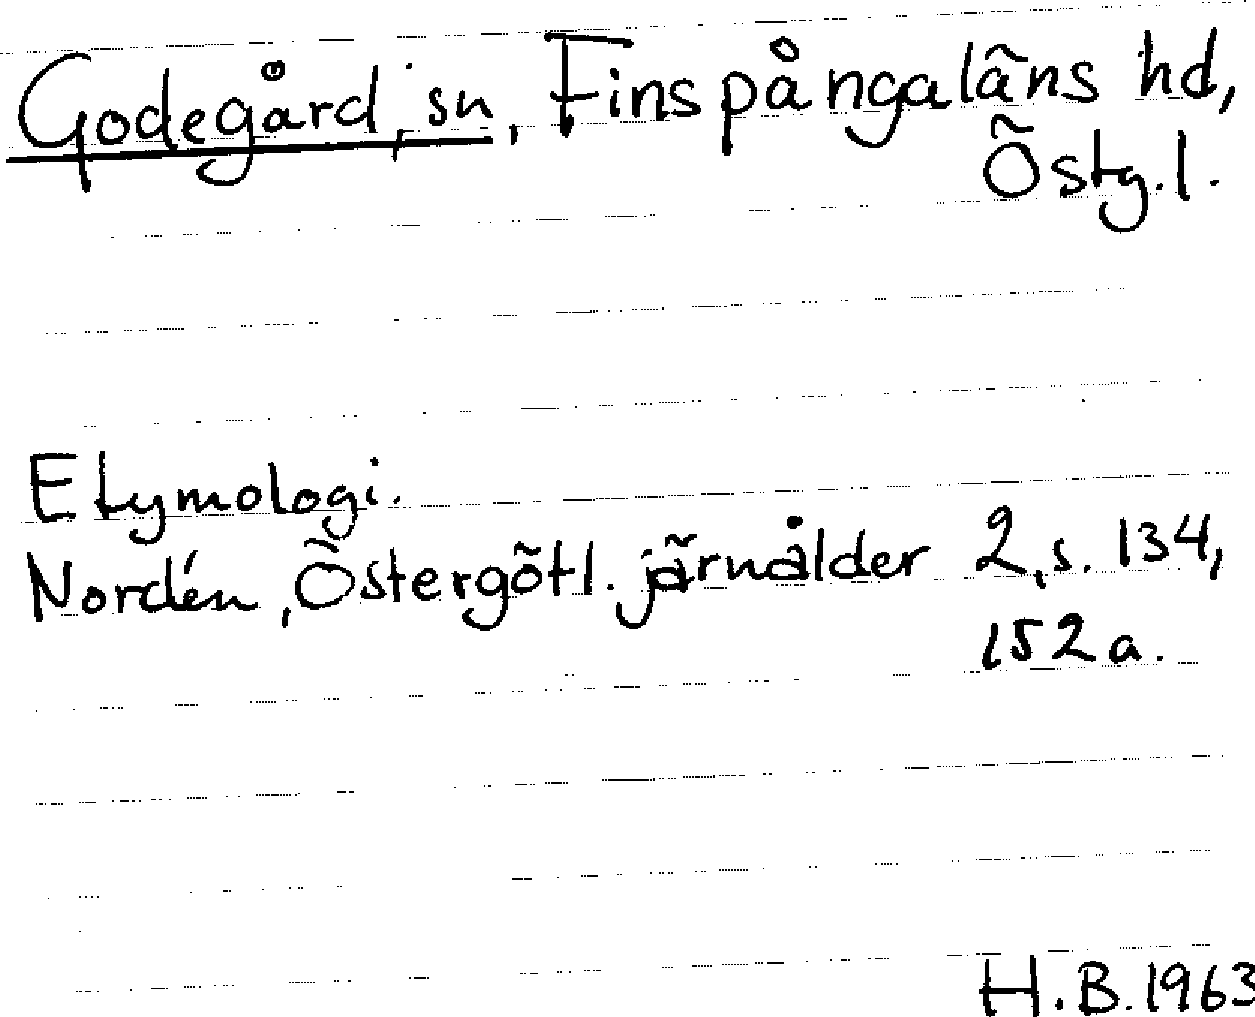 Godegård, sn, Finspångaläns hd,
Östg.l.
Etymologi.
Nordén, Östergötl. järnålder 2, s. 134,
152 a.
H.B. 1963